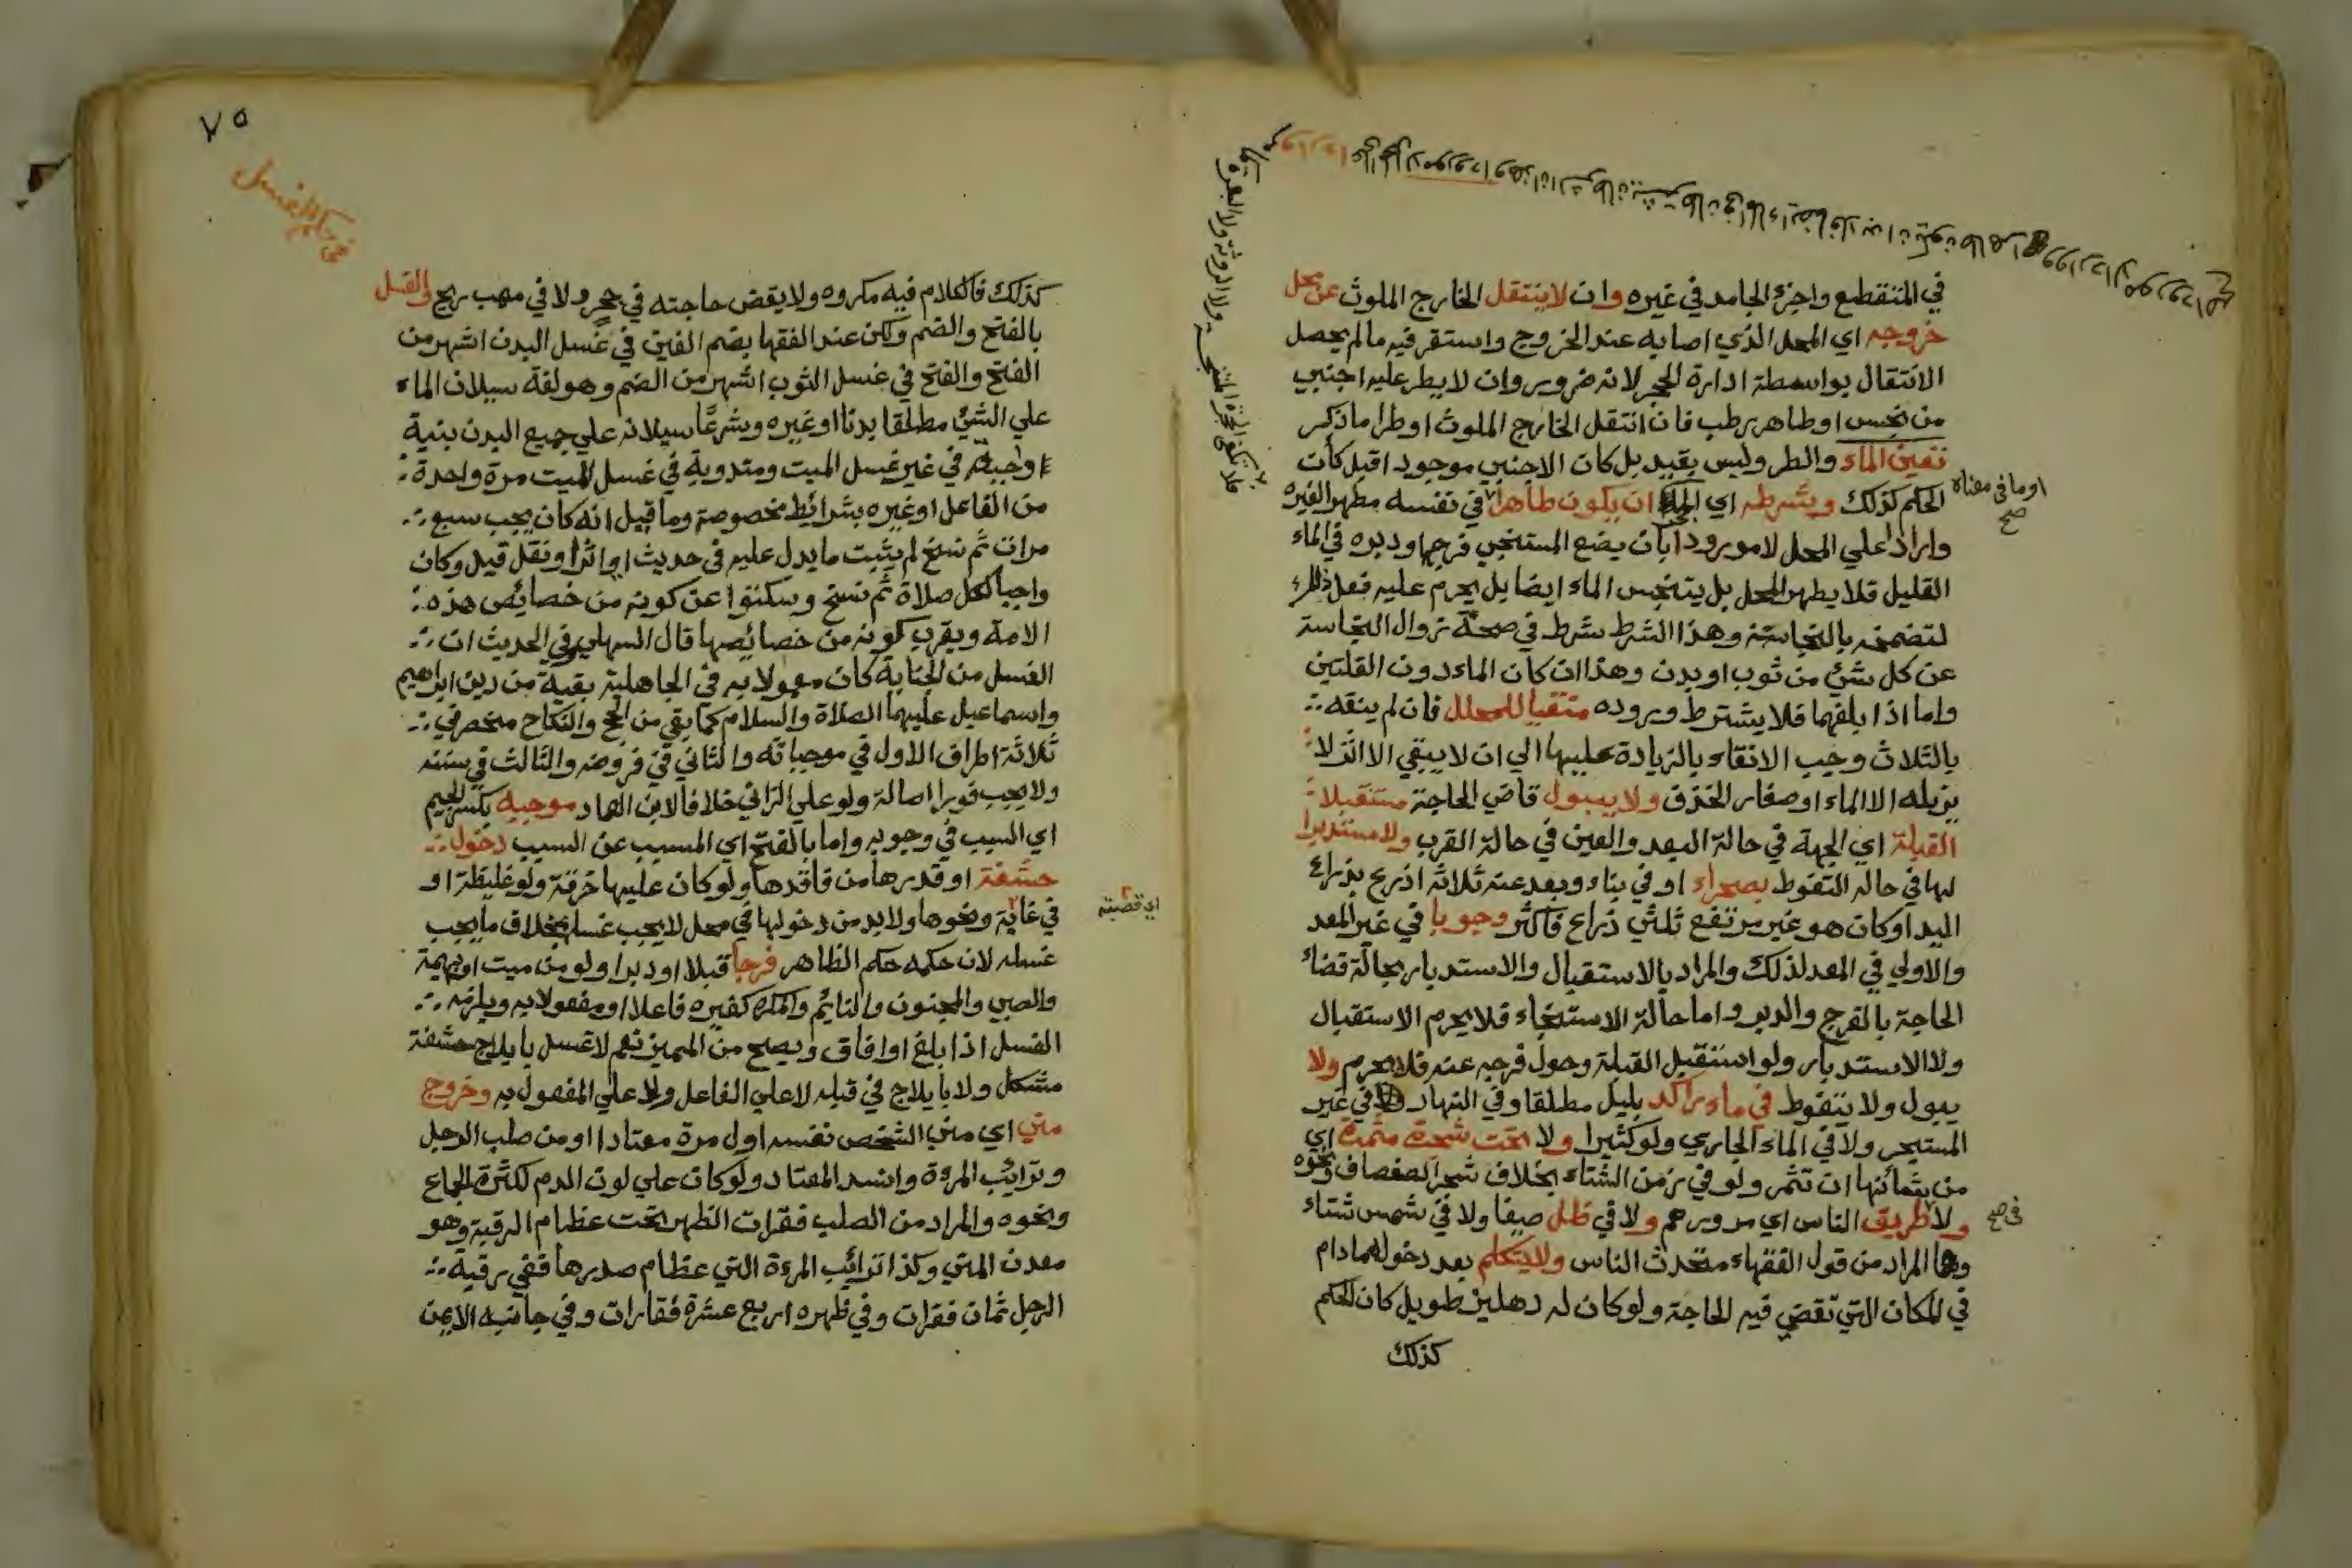 في المتقطع واجزء الجامد في غيره وان لا ينتقل الخارج الملوث عن محل
خروجه اي المحل الذي اصابه عند الخروج واستقر فيه ما لم يحصل
الانتقال بواسطة ادارة الحجر لانه ضرور وان لا يطر عليه اجنبي
من نجس او طاهر رطب فان انتقل الخارج الملوث او طرا ما ذكر
تعين الماء والطر وليس بقيد بل كان الاجنبي موجودا قبل كان
او ما في معناه صح
الحكم كذلك وبشرطه اي ان يكون طاهرا في نفسه مطهرا لغيره
واراد علي المحل لا مورودا بان يضع المستنجي فرجه او دبره في الماء
القليل فلا يطهر المحل بل يتنجس الماء ايضا بل يحرم عليه فعل ذلك
لتضمخه بالنجاسة وهذا الشرط شرط في صحة زوال النجاسة
عن كل شئ من ثوب او بدن وهذا ان كان الماء دون القلتين
واما اذا بلغهما فلا يشترط وروده منقيا للمحل فان لم ينقه
بالثلاث وجب الانقاء بالزيادة عليها الي ان لا يبقي الا اثر لا
يزيله الا الماء او صغار الخزف ولا يبول قاضي الحاجة مستقبلا
القبلة اي الجهة في حالة البعد والعين في حالة القرب ولا مستدبرا
لها في حالة التغوط بصحراء او في بناء وبعد عنه ثلاثة اذرع بذراع
اليد او كان هو غير مرتفع ثلثي ذراع فاكثر وجوبا في غير المعد
والاولي في المعد لذلك والمراد بالاستقبال والاستدبار بحالة قضاء
الحاجة بالفرج والدبر واما حالة الاستنجاء فلا يحرم الاستقبال
ولا الاستدبار ولو استقبل القبلة وحول فرجه عنه فلا يحرم ولا
يبول ولا يتغوط في ماء راكد بليل مطلقا وفي النهار في غير
المستبحر ولا في الماء الجاري ولو كثيرا ولا تحت شجرة مثمرة اي
من شانها ان تثمر ولو في زمن الشتاء بخلاف شجر الصفصاف ونحوه
ولا طريق الناس اي مرورهم ولا في ظل صيفا ولا في شمس شتاء
في صح
وهما المراد من قول الفقهاء متحدث الناس ولا يتكلم بعد دخوله مادام
في المكان التي تقضي فيه الحاجة ولو كان له دهليز طويل كان الحكم
كذلك
٧٥
كذلك فالكلام فيه مكروه ولا يقض حاجته في جحر ولا في مهب ريح والغسل
بالفتح والضم ولكن عند الفقها بضم الغين في غسل البدن اشهر من
الفتح والفتح في غسل الثوب اشهر من الضم وهو لغة سيلان الماء
علي الشئ مطلقا بدنا او غيره وشرعا سيلانه علي جميع البدن بنية
واجبة في غير غسل الميت ومندوبة في غسل الميت مرة واحدة
من الفاعل او غيره بشرائط مخصوصة وما قيل انه كان يجب سبع
مرات ثم نسخ لم يثبت ما يدل عليه في حديث او اثر ونقل قيل وكان
واجبا لكل صلاة ثم نسخ وسكتوا عن كونه من خصائص هذه
الامة ويقرب كونه من خصائصها قال السهلي وفي الحديث ان
الغسل من الجنابة كان معمولا به في الجاهلية بقية من دين ابراهيم
واسماعيل عليهما الصلاة والسلام كما بقي من الحج والنكاح منحصر في
ثلاثة اطراف الاول في موجباته والثاني في فروضه والثالث في سننه
ولا يجب فورا اصالة ولو علي الزاني خلافا لابن العماد موجبه بكسر الجيم
اي السبب في وجوبه واما بالفتح اي المسبب عن السبب دخول
حشفة او قدرها من فاقدها ولو كان عليها خرقة ولو غليظة او
في غابة ونحوها ولا بد من دخولها في محل لا يجب غسله بخلاف ما يجب
اي قصبته
غسله لان حكمه حكم الظاهر فرجا قبلا او دبرا ولو من ميت او بهيمة
والصبي والمجنون والنايم والمكره كغيره فاعلا او مفعولا به ويلزمه
الغسل اذا بلغ او افاق ويصح من المميز نعم لا غسل بايلاج حشفة
مشكل ولا بايلاج في قبله لا علي الفاعل ولا علي المفعول به وخروج
مني اي مني الشخص نفسه اول مرة معتادا او من صلب الرجل
وترايب المرءة وانسد المعتاد ولو كان علي لون الدم لكثرة الجماع
ونحوه والمراد من الصلب فقرات الظهر تحت عظام الرقبة وهو
معدن المني وكذا ترائب المرءة التي عظام صدرها ففي رقبة
الرجل ثمان فقرات وفي ظهره اربع عشرة فقارات وفي جانبه الايمن